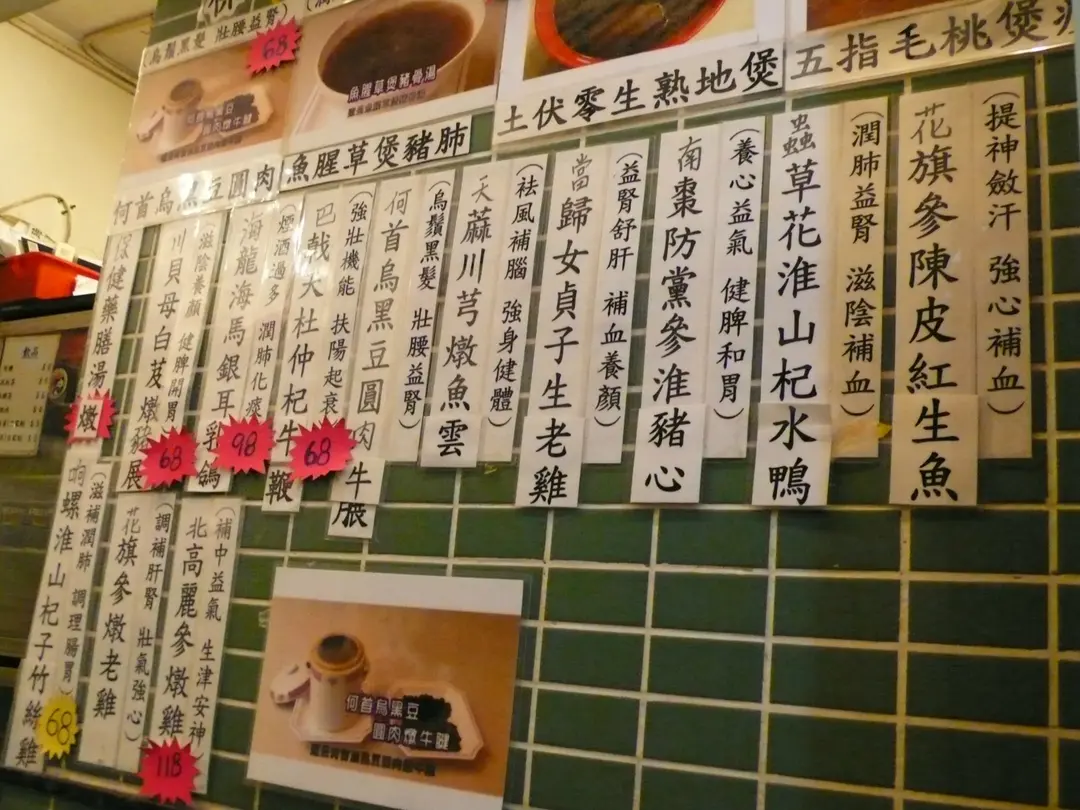 五指毛桃煲
土伏零生熟地煲
魚腥草煲豬肺
何首烏黑豆圓肉
烏鬚黑髮 壯腰益腎)
68
魚腥草煲豬骨湯
(提神斂汗 強心補血)
花旗參陳皮紅生魚
(潤肺益腎 滋陰補血)
蟲草花淮山杞水鴨
(養心益氣 健脾和胃)
南棗防黨參淮豬心
(益腎舒肝 補血養顏)
當歸女貞子生老雞
(袪風補腦 強身健體)
天蔴川芎燉魚雲
(烏鬚黑髮 壯腰益腎)
何首烏黑豆圓肉牛𦟌
(強壯機能 扶陽起衰)
巴戟大杜仲杞牛鞭
68
(煙酒過多 潤肺化痰
海龍海馬銀耳乳鴿
98
(滋陰養顏 健脾開胃
川貝母白芨燉豬展
68
保健藥膳湯
燉
(補中益氣 生津安神)
北高麗參燉雞
118
(調補肝腎 壯氣強心)
花旗參燉老雞
(滋補潤肺 調理腸胃)
响螺淮山杞子竹絲雞
68
何首烏黑豆
圓肉燉牛𦟌